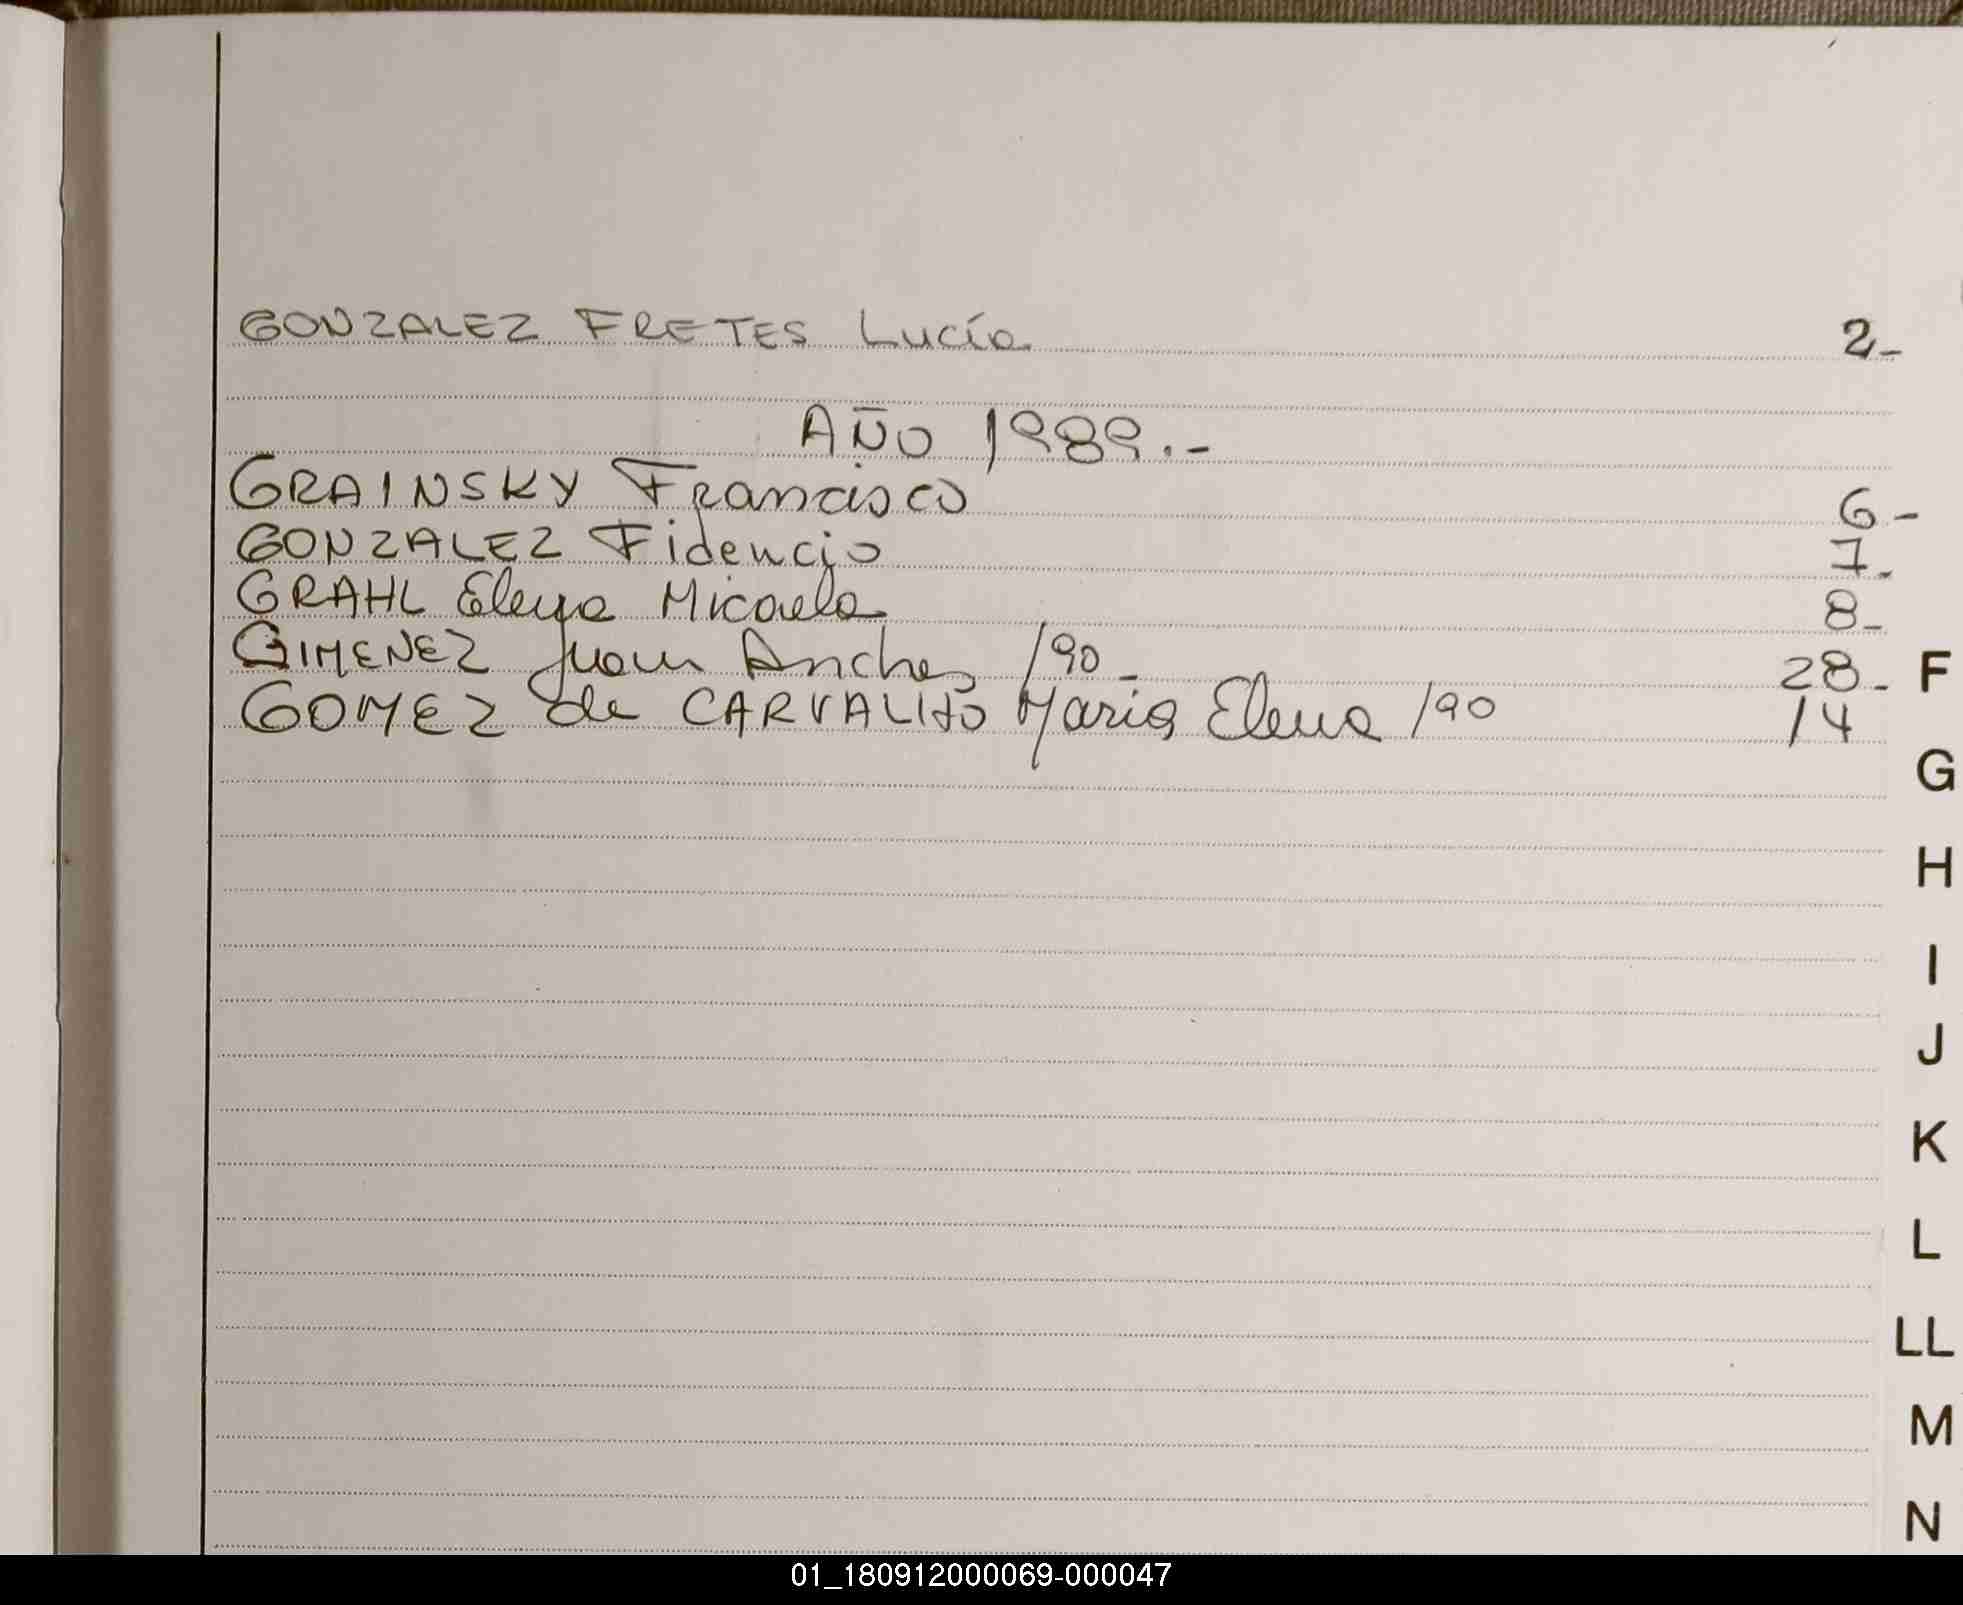 GONZALEZ FRETES Lucía 2-
AÑO 1989.-
GRAINSKY Francisco 6-
GONZALEZ Fidencio 7-
GRAHL Elena Micaela 8-
GIMENEZ Juan /90 28- F
GOMEZ de CARVALHO Maria Elena /90 14
G
H
I
J
K
L
LL
M
N
01_180912000069-000047